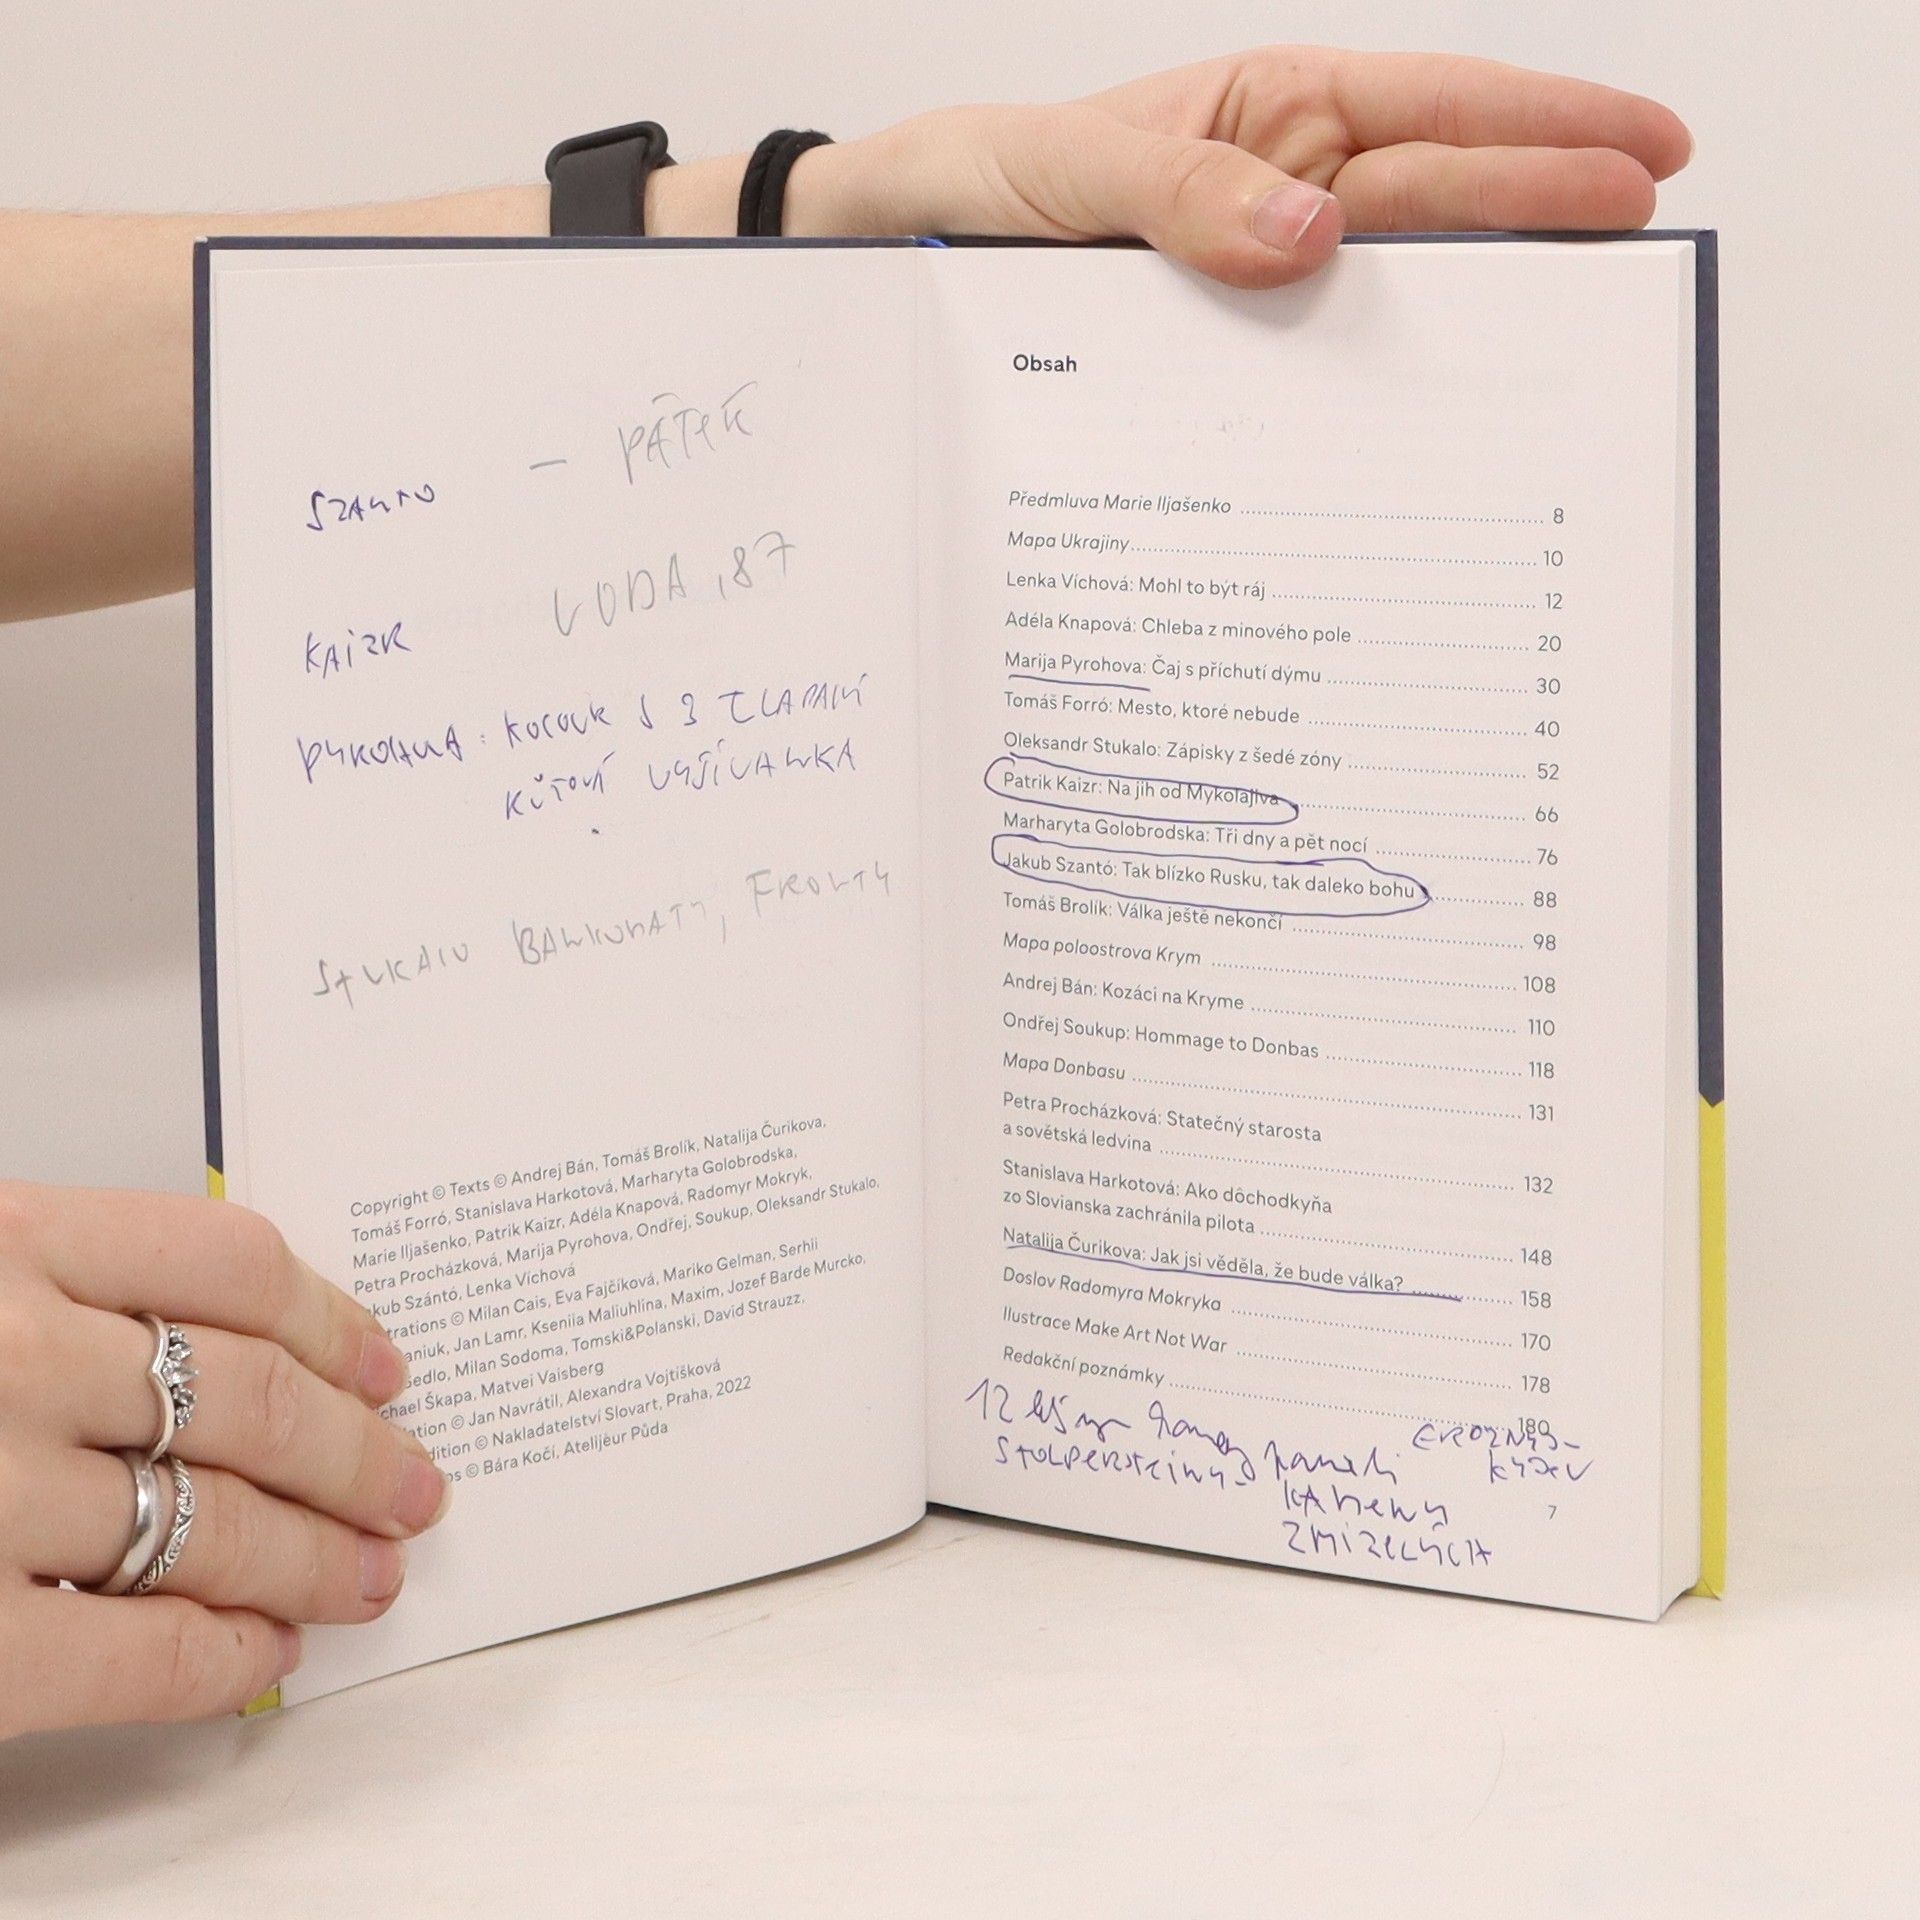 SZANTO – PÁTEK
KAIZR VODA, 87
KOCOUR S 3 TLAPAMI
VYŠÍVANKA
STUKALO BANKOMATY, FRONTY
Copyright © Texts © Andrej Bán, Tomáš Brolík, Natalija Čurikova,
Tomáš Forró, Stanislava Harkotová, Marharyta Golobrodska,
Marie Iljašenko, Patrik Kaizr, Adéla Knapová, Radomyr Mokryk,
Petra Procházková, Marija Pyrohova, Ondřej, Soukup, Oleksandr Stukalo,
kub Szántó, Lenka Víchová
trations © Milan Cais, Eva Fajčíková, Mariko Gelman, Serhii
aniuk, Jan Lamr, Kseniia Maliuhlina, Maxim, Jozef Barde Murcko,
Sedlo, Milan Sodoma, Tomski&Polanski, David Strauzz,
chael Škapa, Matvei Vaisberg
ation © Jan Navrátil, Alexandra Vojtišková
dition © Nakladatelství Slovart, Praha, 2022
os © Bára Kočí, Atelijéur Půda
Obsah
Předmluva Marie Iljašenko 8
Mapa Ukrajiny 10
Lenka Víchová: Mohl to být ráj 12
Adéla Knapová: Chleba z minového pole 20
Marija Pyrohova: Čaj s příchutí dýmu 30
Tomáš Forró: Mesto, ktoré nebude 40
Oleksandr Stukalo: Zápisky z šedé zóny 52
Patrik Kaizr: Na jih od Mykolajiva 66
Marharyta Golobrodska: Tři dny a pět nocí 76
Jakub Szantó: Tak blízko Rusku, tak daleko bohu 88
Tomáš Brolík: Válka ještě nekončí 98
Mapa poloostrova Krym 108
Andrej Bán: Kozáci na Kryme 110
Ondřej Soukup: Hommage to Donbas 118
Mapa Donbasu 131
Petra Procházková: Statečný starosta
a sovětská ledvina 132
Stanislava Harkotová: Ako dôchodkyňa
zo Slovianska zachránila pilota 148
Natalija Čurikova: Jak jsi věděla, že bude válka? 158
Doslov Radomyra Mokryka 170
Ilustrace Make Art Not War 178
Redakční poznámky 180
12
STOLPERSTEINY-
KAMENY
ZMIZELÝCH
7